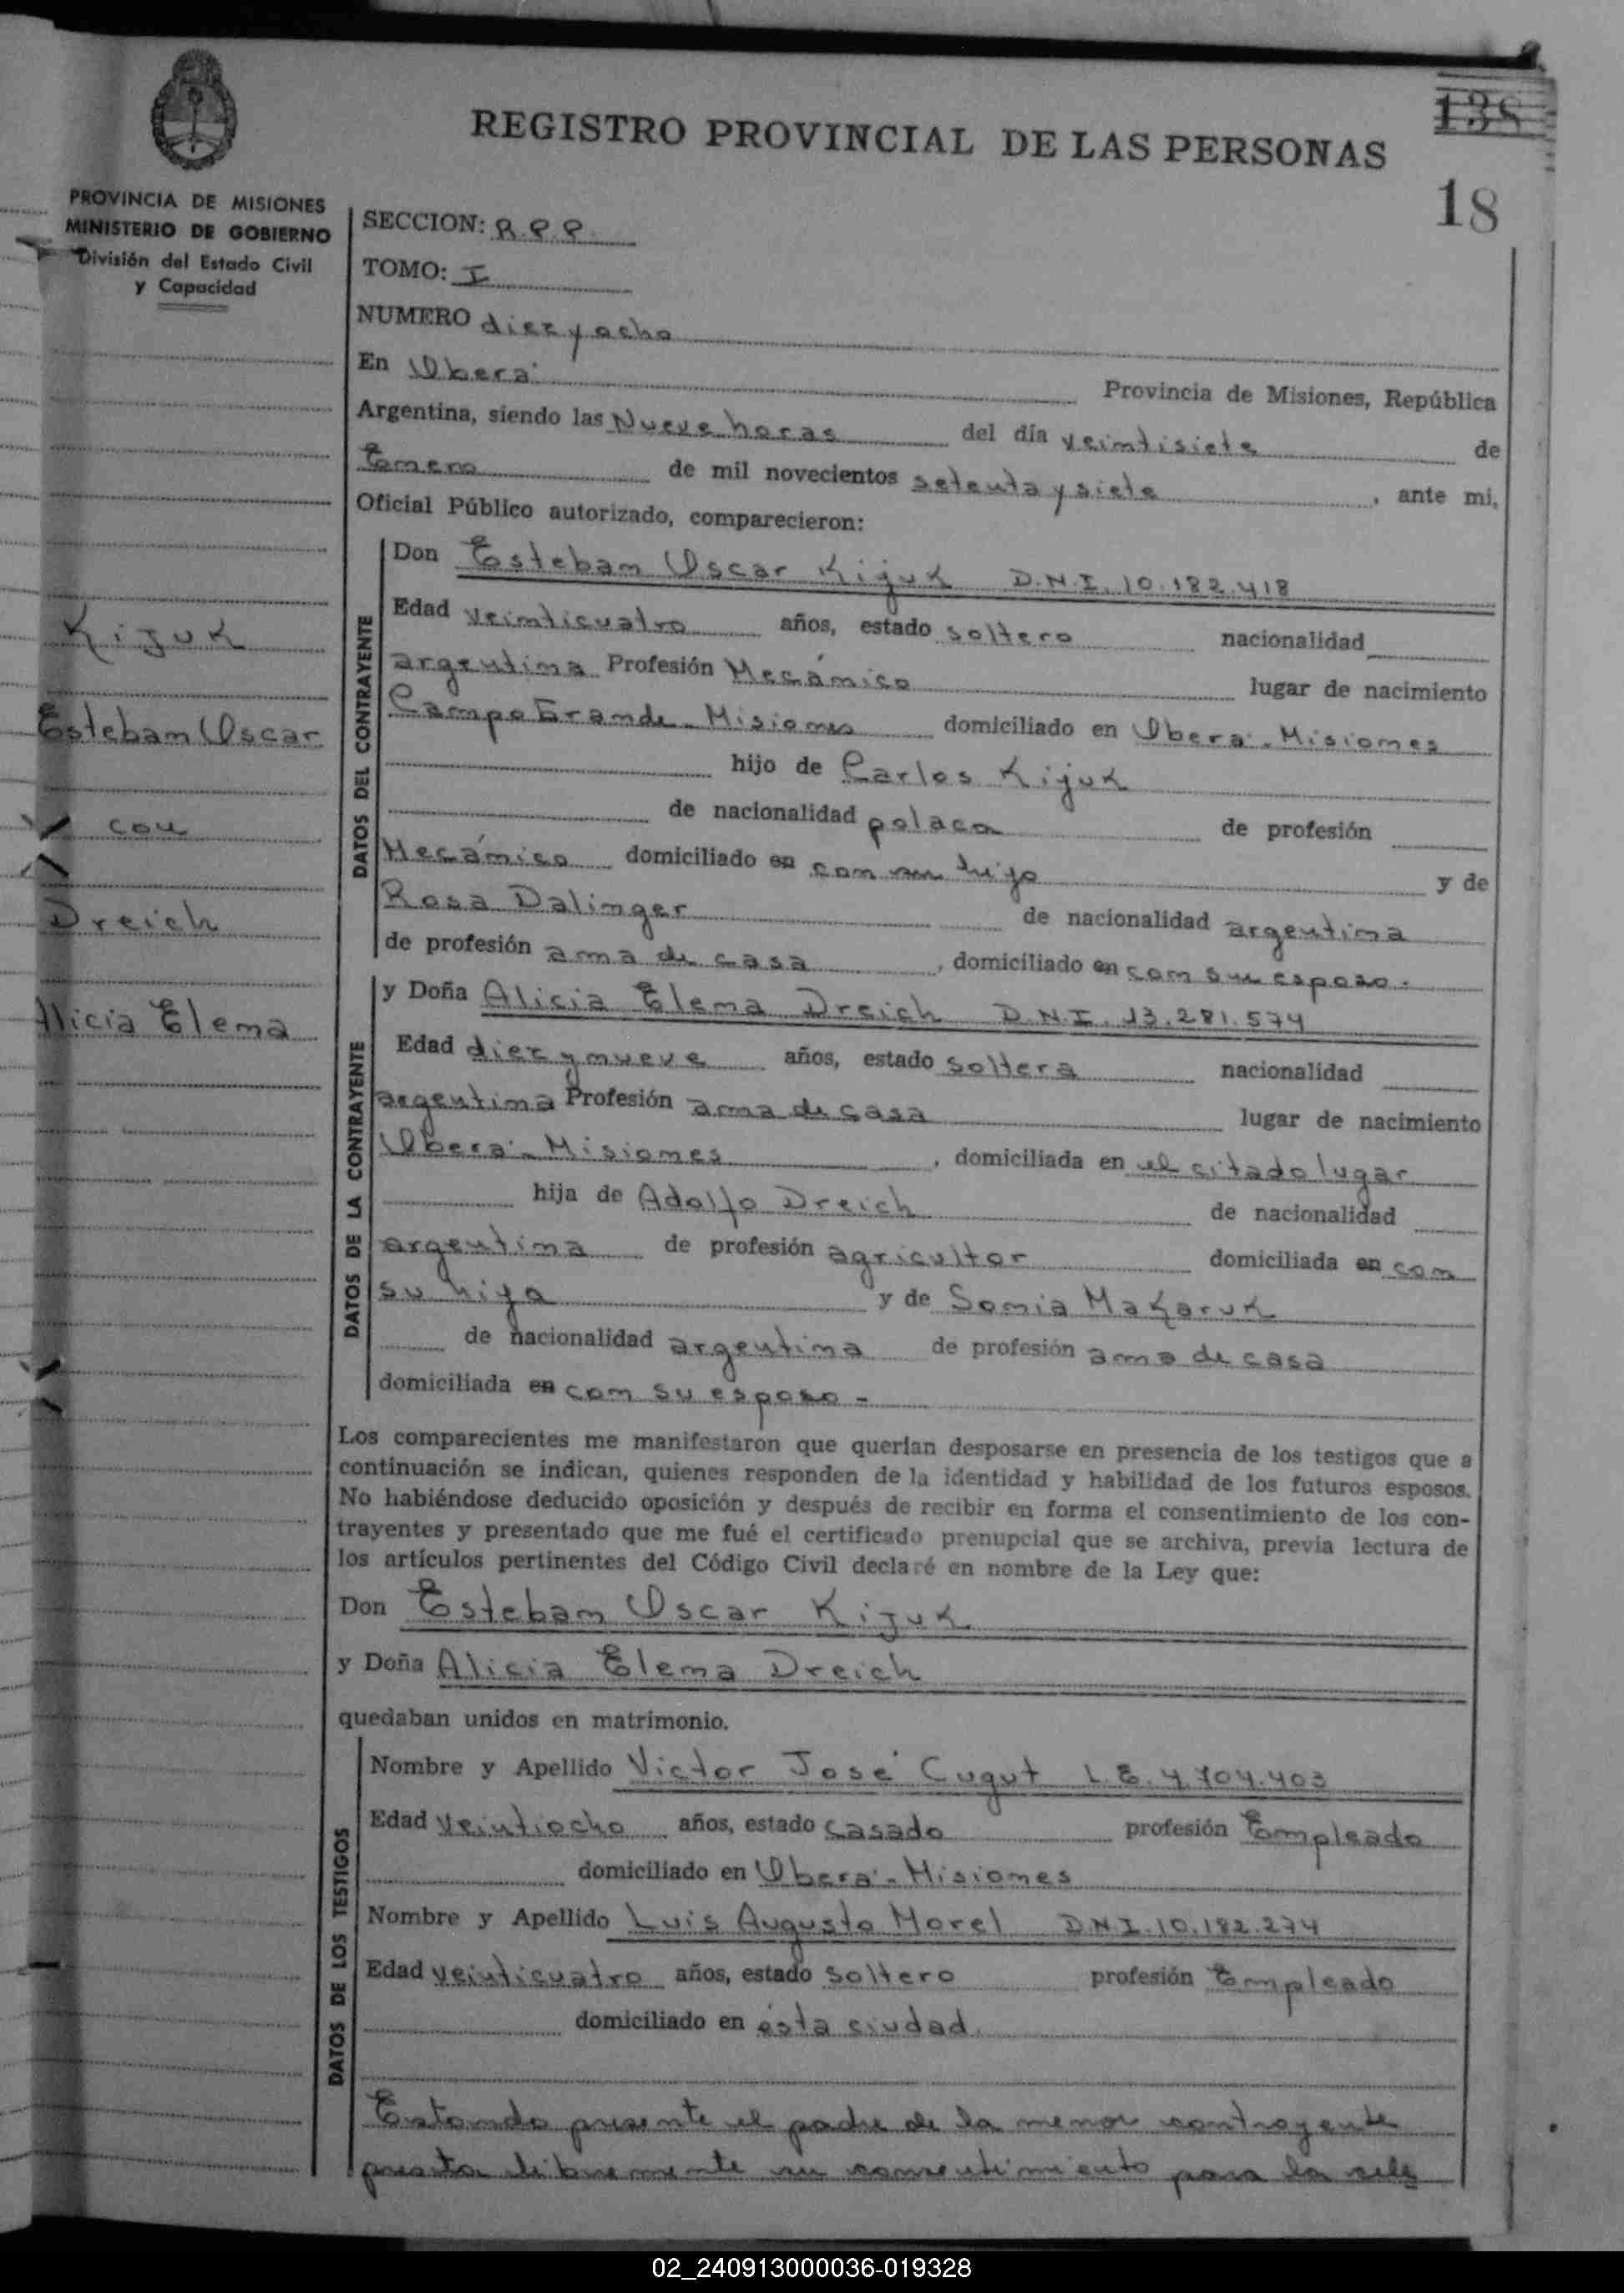 138
REGISTRO PROVINCIAL DE LAS PERSONAS
18
PROVINCIA DE MISIONES
MINISTERIO DE GOBIERNO
División del Estado Civil
y Capacidad
Kijuk
Esteban Oscar
con
Dreich
Alicia Elena
SECCION: R.P.P.
TOMO: I
NUMERO diez y ocho
En Oberá Provincia de Misiones, República
Argentina, siendo las Nueve horas del día veintisiete de
Enero de mil novecientos setenta y siete, ante mi,
Oficial Público autorizado, comparecieron:
DATOS DEL CONTRAYENTE
Don Esteban Oscar Kijuk D.N.I. 10.182.418
Edad veinticuatro años, estado soltero nacionalidad
argentina Profesión Mecánico lugar de nacimiento
Campo Grande - Misiones domiciliado en Oberá - Misiones
hijo de Carlos Kijuk
de nacionalidad polaca de profesión
Mecánico domiciliado en con su hijo y de
Rosa Dalinger de nacionalidad argentina
de profesión ama de casa, domiciliado en con su esposo.
DATOS DE LA CONTRAYENTE
y Doña Alicia Elena Dreich D.N.I. 13.281.574
Edad diez y nueve años, estado soltera nacionalidad
argentina Profesión ama de casa lugar de nacimiento
Oberá - Misiones, domiciliada en el citado lugar
hija de Adolfo Dreich de nacionalidad
argentina de profesión agricultor domiciliada en con
su hija y de Sonia Makaruk
de nacionalidad argentina de profesión ama de casa
domiciliada en con su esposo -
Los comparecientes me manifestaron que querían desposarse en presencia de los testigos que a
continuación se indican, quienes responden de la identidad y habilidad de los futuros esposos.
No habiéndose deducido oposición y después de recibir en forma el consentimiento de los con-
trayentes y presentado que me fué el certificado prenupcial que se archiva, previa lectura de
los artículos pertinentes del Código Civil declaré en nombre de la Ley que:
Don Esteban Oscar Kijuk
y Doña Alicia Elena Dreich
quedaban unidos en matrimonio.
DATOS DE LOS TESTIGOS
Nombre y Apellido Victor José Cugut L.E. 4.704.403
Edad veintiocho años, estado casado profesión Empleado
domiciliado en Oberá - Misiones
Nombre y Apellido Luis Augusto Morel D.N.I. 10.182.274
Edad veinticuatro años, estado soltero profesión Empleado
domiciliado en ésta ciudad.
Estando presente el padre de la menor contrayente
presta libremente su consentimiento para la cele
02_240913000036-019328